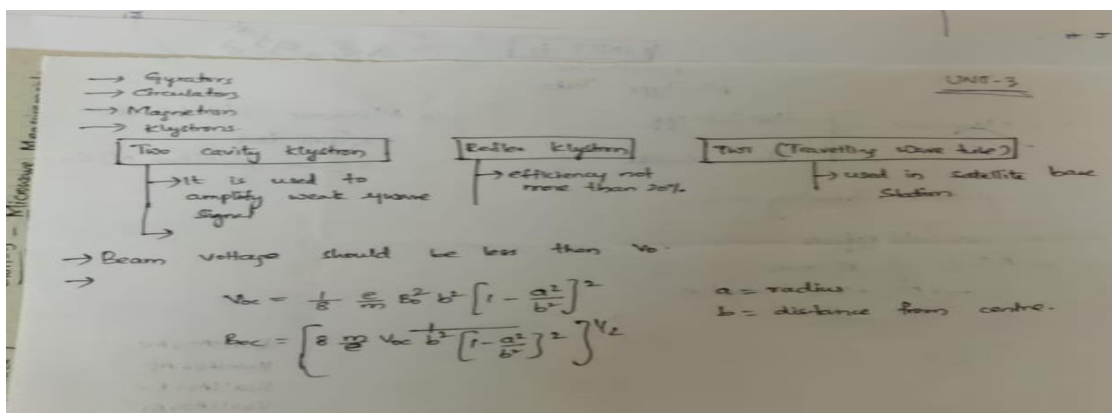 UNIT-3
→ Gyrators
→ Circulators
→ Magnetron
→ Klystrons
Two cavity Klystron
→ It is used to
amplify weak μwave
signal
Reflex Klystron
→ efficiency not
more than 20%.
TWT (Travelling wave tube)
→ used in satellite base
Station
→ Beam voltage should be less than V₀.
→
V₀c = 1/8 e/m B₀² b² [1 - a²/b²]²
B₀c = [8 m/e V₀c 1/b² [1 - a²/b²]²]^1/2
a = radius
b = distance from centre.